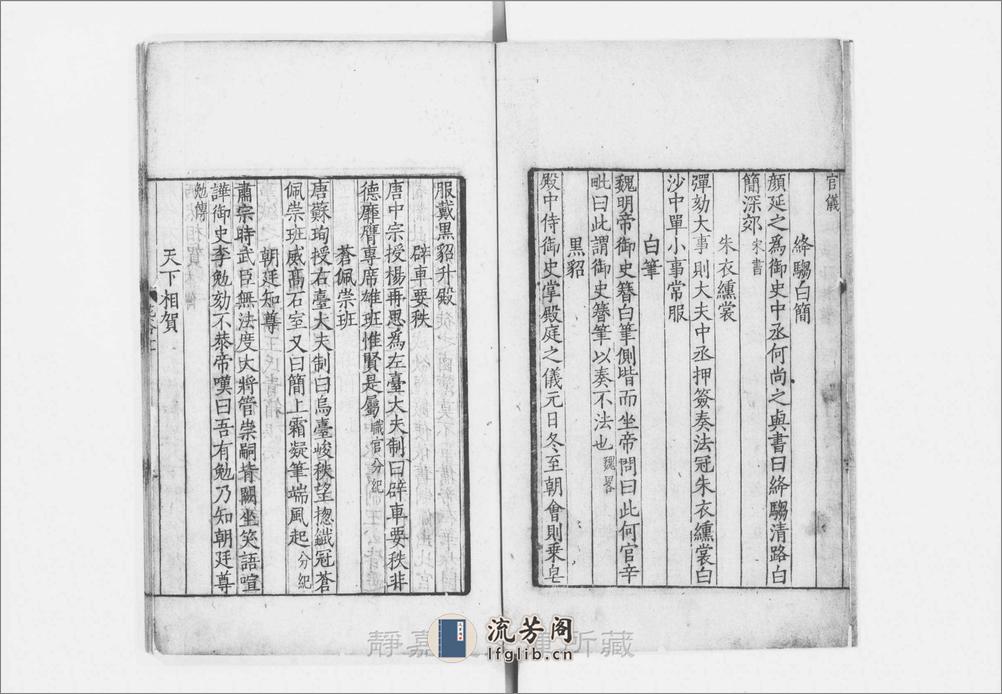 官儀
絳騶白簡
顏延之為御史中丞何尚之與書曰絳騶清路白
簡深郊宋書
朱衣纁裳
彈劾大事則大夫中丞押簽奏法冠朱衣纁裳白
沙中單小事常服
白筆
魏明帝御史簪白筆側堦而坐帝問曰此何官辛
毗曰此謂御史簪筆以奏不法也魏畧
黒貂
殿中侍御史掌殿庭之儀元日冬至朝會則乗皂
服戴黒貂升殿
辟車要秩
唐中宗授楊再思為左臺大夫制曰辟車要秩非
德靡膺專席雄班惟賢是屬職官分紀
蒼佩崇班
唐蘇珦授右臺大夫制曰烏臺峻秩望揔鐵冠蒼
佩崇班威髙石室又曰簡上霜凝筆端風起分紀
朝廷知尊
肅宗時武臣無法度大將管崇嗣背闕坐笑語喧
譁御史李勉劾不恭帝嘆曰吾有勉乃知朝廷尊
勉傳
天下相賀
靜嘉 所藏
流芳阁
lfglib.cn